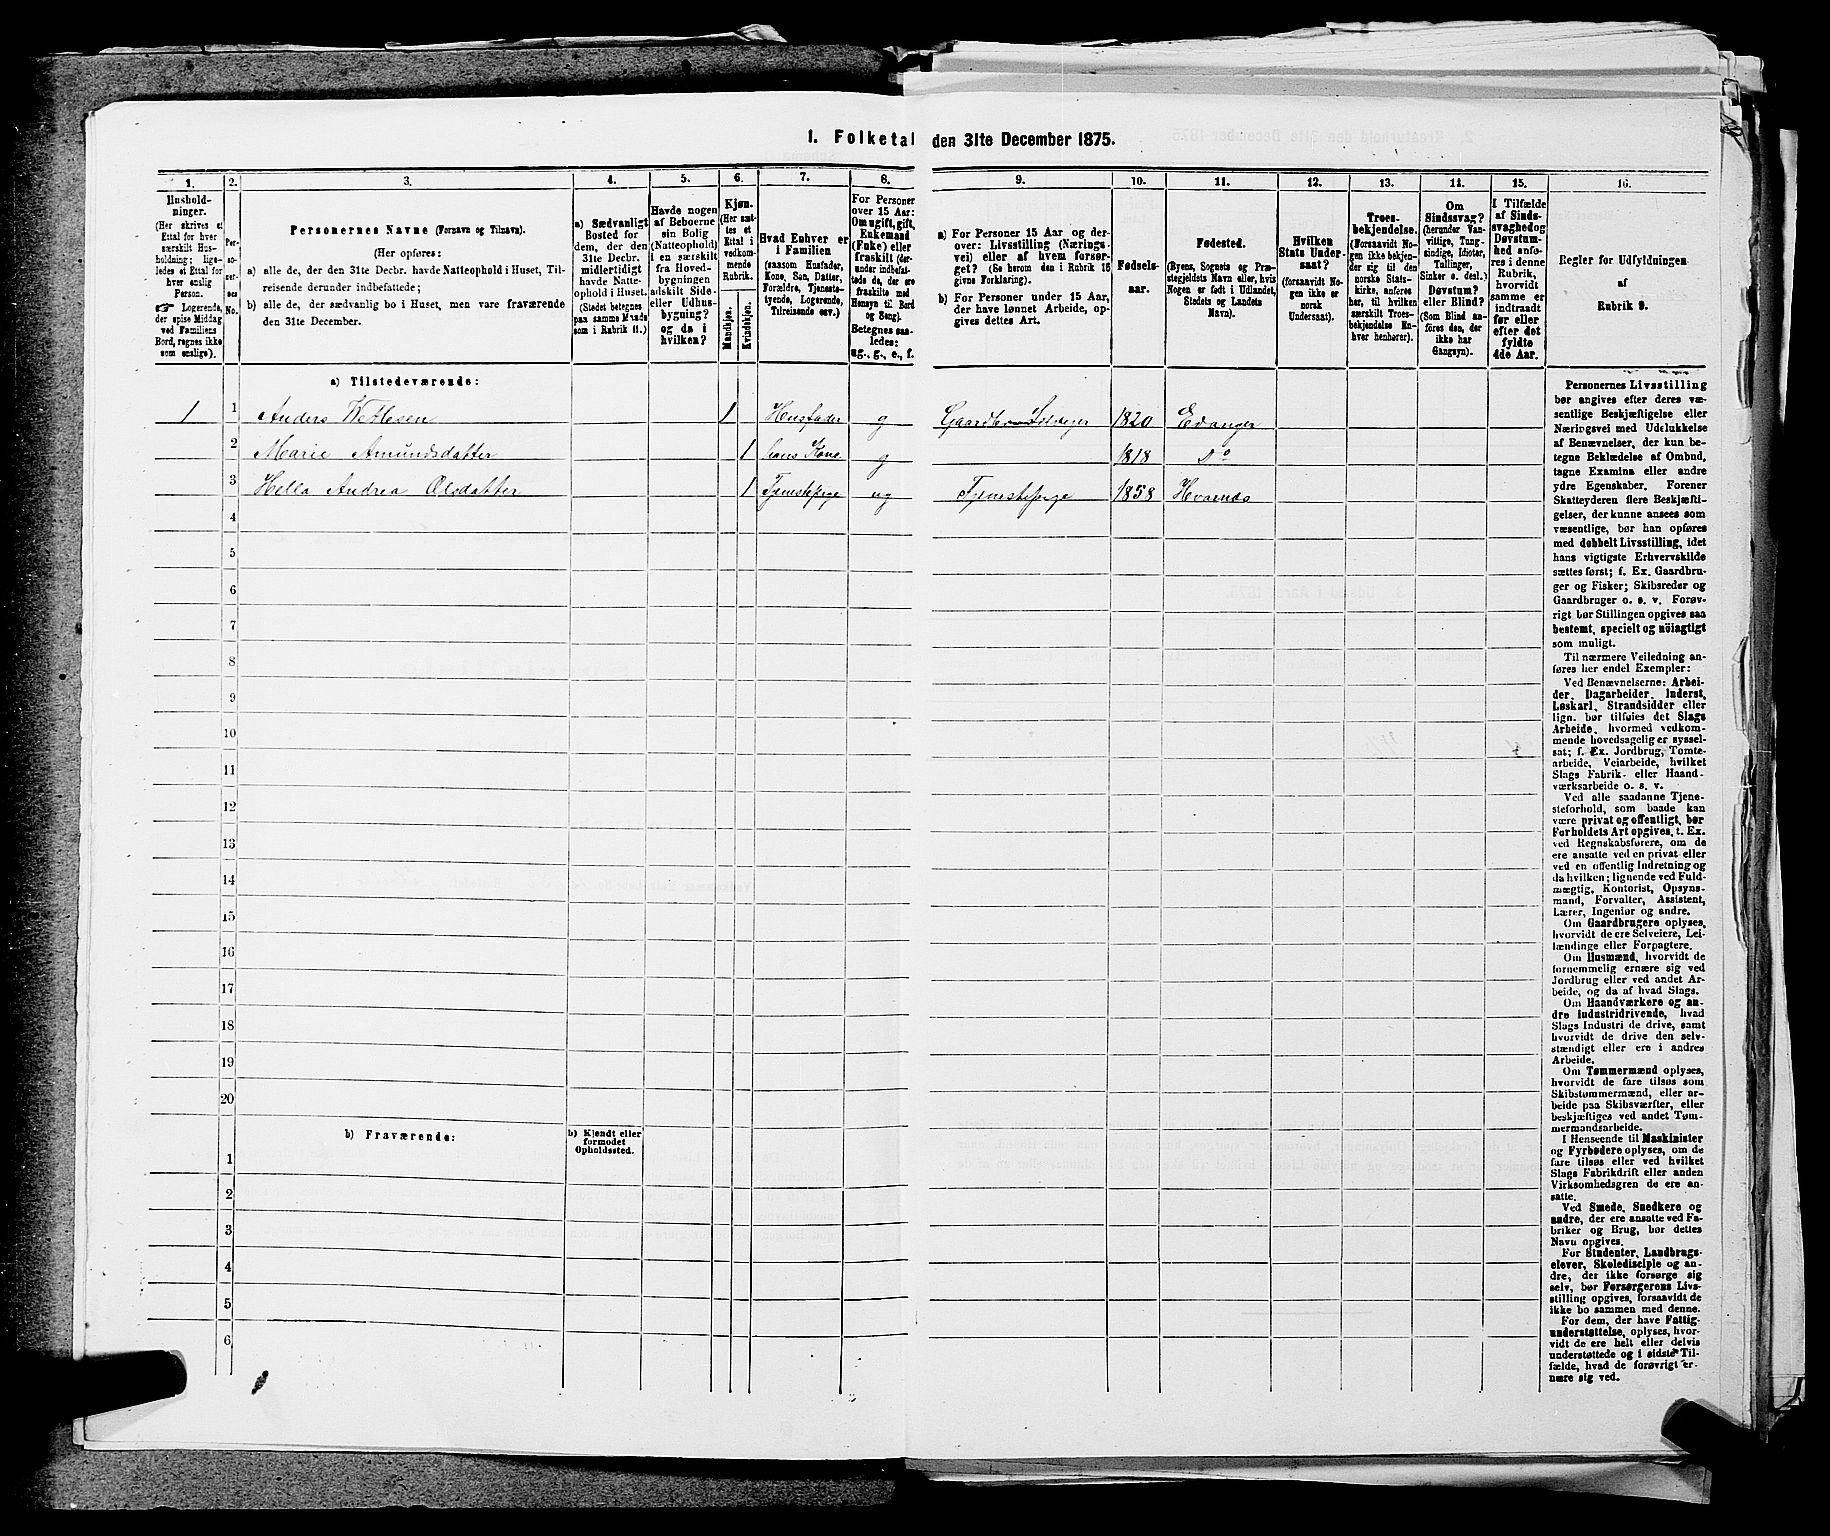 1. Folketal den 31te December 1875.
1. 2. 3. 4. 5. 6. 7. 8. 9. 10. 11. 12. 13. 14. 15. 16.
Hushold-
ninger.
(Her skrives et
Ettal for hver
særskilt Hus-
holdning; lige-
ledes et Ettal for
hver enslig
Person.
☞ Logerende,
der spise Middag
ved Familiens
Bord, regnes ikke
som enslige).
Per-
so-
ner-
nes
No.
Personernes Navne (Fornavn og Tilnavn).
(Her opføres:
a) alle de, der den 31te Decbr. havde Natteophold i Huset, Til-
reisende derunder indbefattede;
b) alle de, der sædvanlig bo i Huset, men vare fraværende
den 31te December.
a) Sædvanligt
Bosted for
dem, der den
31te Decbr.
midlertidigt
havde Natte-
ophold i Huset.
(Stedet betegnes
paa samme Maade
som i Rubrik 11.)
Havde nogen
af Beboerne
sin Bolig
(Natteophold)
i en særskilt
fra Hoved-
bygningen
adskilt Side-
eller Udhus-
bygning?
og da i
hvilken?
Kjøn.
(Her sæt-
tes et
Ettal i
vedkom-
mende
Rubrik.
Mandskjøn.
Kvindekjøn.
Hvad Enhver er
i Familien
(saasom Husfader,
Kone, Søn, Datter,
Forældre, Tjeneste-
tyende, Logerende,
Tilreisende osv.)
For Personer
over 15 Aar:
Om ugift, gift,
Enkemand
(Enke) eller
fraskilt (der-
under indbefat-
tede de, der ere
fraskilte med
Hensyn til Bord
og Seng).
Betegnes saa-
ledes:
ug., g., e., f.
a) For Personer 15 Aar og der-
over: Livsstilling (Nærings-
vei) eller af hvem forsør-
get? (Se herom den i Rubrik 16
givne Forklaring).
b) For Personer under 15 Aar,
der have lønnet Arbeide, op-
gives dettes Art.
Fødsels-
aar.
Fødested.
(Byens, Sognets og Præ-
stegjeldets Navn eller, hvis
Nogen er født i Udlandet,
Stedets og Landets
Navn).
Hvilken
Stats Under-
saat?
(forsaavidt No-
gen ikke er
norsk
Undersaat).
Troes-
bekjendelse.
(Forsaavidt No-
gen ikke bekjen-
der sig til den
norske Stats-
kirke, anføres
her, til hvilken
særskilt Troes-
bekjendelse En-
hver henhører).
Om
Sindssvag?
(herunder Van-
vittige, Tung-
sindige, Idioter,
Tullinger,
Sinker o. desl.)
Døvstum?
eller Blind?
(Som Blind an-
føres den, der
ikke har
Gangsyn).
I Tilfælde
af Sinds-
svaghed og
Døvstum-
hed anfø-
res i denne
Rubrik,
hvorvidt
samme er
indtraadt
før eller
efter det
fyldte
4de Aar.
Regler for Udfyldningen
af
Rubrik 9.
a) Tilstedeværende:
1 1 Anders Wetlesen 1 Husfader g Gaardbr Selveier 1820 Edanger
2 Marie Amundsdatter 1 hans Kone g 1818 do
3 Hella Andrea Olsdatter 1 Tjenstepige ug Tjenstepige 1858 Hvarnæs
4
5
6
7
8
9
10
11
12
13
14
15
16
17
18
19
20
b) Fraværende:
b) Kjendt eller
formodet
Opholdssted.
1
2
3
4
5
6
Personernes Livsstilling
bør angives efter deres væ-
sentlige Beskjæftigelse eller
Næringsvei med Udelukkelse
af Benævnelser, der kun be-
tegne Beklædelse af Ombud,
tagne Examina eller andre
ydre Egenskaber. Forener
Skatteyderen flere Beskjæfti-
gelser, der kunne ansees som
væsentlige, bør han opføres
med dobbelt Livsstilling, idet
hans vigtigste Erhvervskilde
sættes først; f. Ex. Gaardbru-
ger og Fisker; Skibsreder og
Gaardbruger o. s. v. Forøv-
rigt bør Stillingen opgives saa
bestemt, specielt og nøiagtigt
som muligt.
Til nærmere Veiledning an-
føres her endel Exempler:
Ved Benævnelserne: Arbei-
der, Dagarbeider, Inderst,
Løskarl, Strandsidder eller
lign. bør tilføies det Slags
Arbeide, hvormed vedkom-
mende hovedsagelig er syssel-
sat; f. Ex. Jordbrug, Tomte-
arbeide, Veiarbeide, hvilket
Slags Fabrik- eller Haand-
værksarbeide o. s. v.
Ved alle saadanne Tjene-
steforhold, som baade kan
være privat og offentligt, bør
Forholdets Art opgives, t. Ex.
ved Regnskabsførere, om de
ere ansatte ved en privat eller
ved en offentlig Indretning og
da hvilken; lignende ved Fuld-
mægtig, Kontorist, Opsyns-
mand, Forvalter, Assistent,
Lærer, Ingeniør og andre.
Om Gaardbrugere oplyses,
hvorvidt de ere Selveiere, Lei-
lændinge eller Forpagtere.
Om Husmænd, hvorvidt de
fornemmelig ernære sig ved
Jordbrug eller ved andet Ar-
beide, og da af hvad Slags.
Om Haandværkere og an-
dre industridrivende, hvad
Slags Industri de drive, samt
hvorvidt de drive den selv-
stændigt eller ere i andres
Arbeide.
Om Tømmermænd oplyses,
hvorvidt de fare tilsøs som
Skibstømmermænd, eller ar-
beide paa Skibsværfter, eller
beskjæftiges ved andet Tøm-
mermandsarbeide.
I Henseende til Maskinister
og Fyrbødere oplyses, om de
fare tilsøs eller ved hvilket
Slags Fabrikdrift eller anden
Virksomhedsgren de ere an-
satte.
Ved Smede, Snedkere og
andre, der ere ansatte ved Fa-
briker og Brug, bør dettes
Navn opgives.
For Studenter, Landbrugs-
elever, Skoledisciple og an-
dre, der ikke forsørge sig
selv, bør Forsørgerens Livs-
stilling opgives, forsaavidt de
ikke bo sammen med denne.
For dem, der have Fattig-
understøttelse, oplyses, hvor-
vidt de ere helt eller delvis
understøttede og i sidste Til-
fælde, hvad de forøvrigt er-
nære sig ved.